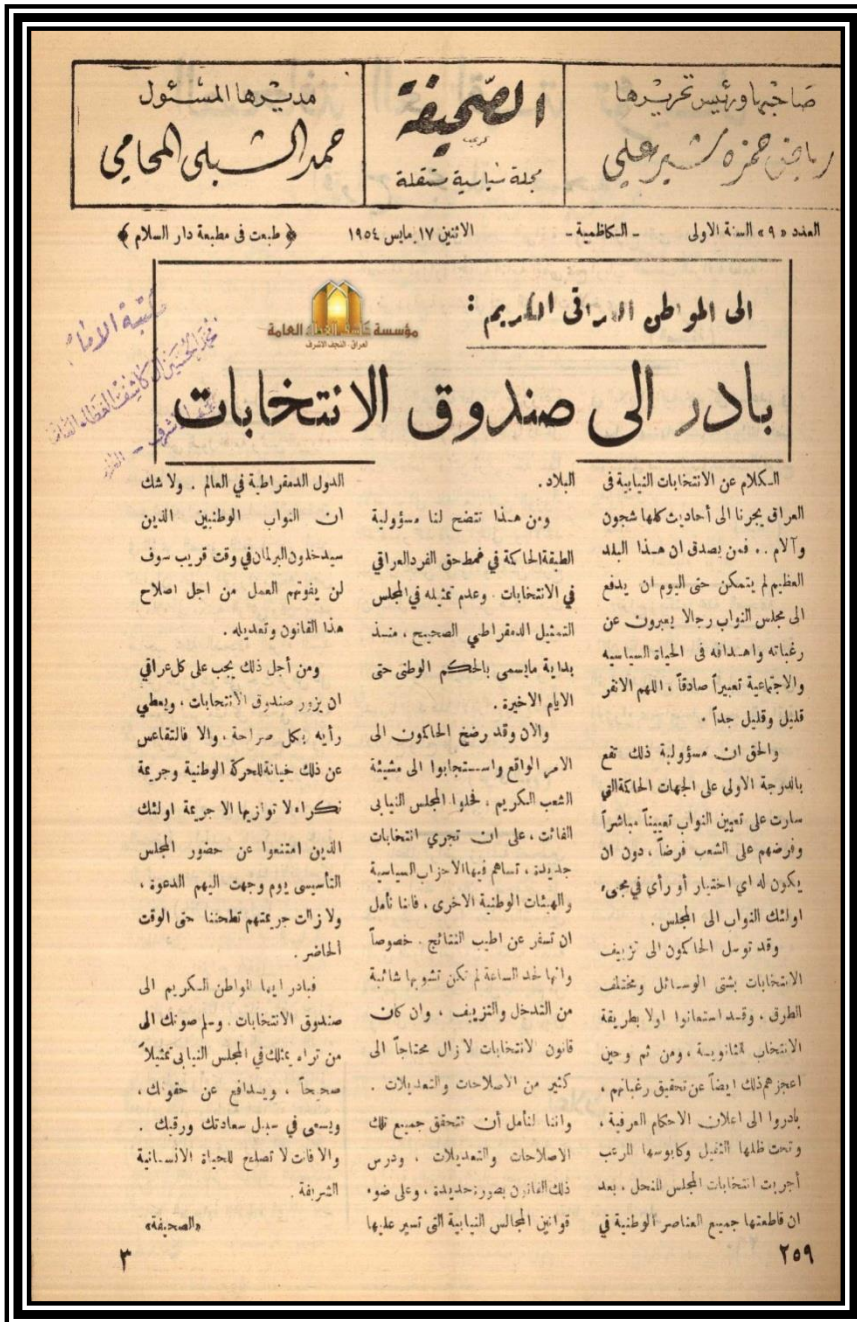 صاحبها ورئيس تحريرها
رياض حمزه شير علي
الصحيفة
مجلة سياسية مستقلة
مديرها المسئول
حمد الشبلي المحامي
العدد «٩» السنة الاولى
- الكاظمية -
الاثنين ١٧ مايس ١٩٥٤
﴿ طبعت فى مطبعة دار السلام ﴾
الى المواطن العراقى الكريم :
مؤسسة كاشف الغطاء العامة
العراق - النجف الاشرف
مكتبة الامام
محمد الحسين آل كاشف الغطاء العامة
بادر الى صندوق الانتخابات
الكلام عن الانتخابات النيابية فى
العراق يجرنا الى أحاديث كلها شجون
وآلام .. فمن يصدق ان هذا البلد
العظيم لم يتمكن حتى اليوم ان يدفع
الى مجلس النواب رجالا يعبرون عن
رغباته واهدافه فى الحياة السياسيه
والاجتماعية تعبيراً صادقاً ، اللهم الا نفر
قليل وقليل جداً .
والحق ان مسؤولية ذلك تقع
بالدرجة الاولى على الجهات الحاكمة التي
سارت على تعيين النواب تعييناً مباشراً
وفرضهم على الشعب فرضاً ، دون ان
يكون له اي اختيار أو رأي في مجىء
اولئك النواب الى المجلس .
وقد توسل الحاكمون الى تزييف
الانتخابات بشتى الوسائل ومختلف
الطرق ، وقد استعانوا اولا بطريقة
الانتخاب الثانوية ، ومن ثم وحين
اعجزهم ذلك ايضاً عن تحقيق رغباتهم ،
بادروا الى اعلان الاحكام العرفية ،
وتحت ظلها الثقيل وكابوسها المرعب
أجريت انتخابات المجلس المنحل ، بعد
ان قاطعتها جميع العناصر الوطنية في
البلاد .
ومن هذا تتضح لنا مسؤولية
الطبقة الحاكمة في غمط حق الفرد العراقي
في الانتخابات . وعدم تمثيله في المجلس
التمثيل الدمقراطي الصحيح ، منذ
بداية مايسمى بالحكم الوطنى حتى
الايام الاخيرة .
والان وقد رضخ الحاكمون الى
الامر الواقع واستجابوا الى مشيئة
الشعب الكريم ، فحلوا المجلس النيابى
الفائت ، على ان تجري انتخابات
جديدة ، تساهم فيها الاحزاب السياسية
والهيئات الوطنية الاخرى ، فاننا نأمل
ان تسفر عن اطيب النتائج . خصوصاً
وانها لحد الساعة لم تكن تشوبها شائبة
من التدخل والتزييف ، وان كان
قانون الانتخابات لازال محتاجاً الى
كثير من الاصلاحات والتعديلات .
واننا لنأمل أن تتحقق جميع تلك
الاصلاحات والتعديلات ، ودرس
ذلك القانون بصورة جديدة ، وعلى ضوء
قوانين المجالس النيابية التى تسير عليها
الدول الدمقراطية في العالم . ولا شك
ان النواب الوطنيين الذين
سيدخلون البرلمان في وقت قريب سوف
لن يفوتهم العمل من اجل اصلاح
هذا القانون وتعديله .
ومن أجل ذلك يجب على كل عراقي
ان يزور صندوق الانتخابات ، ويعطي
رأيه بكل صراحة ، والا فالتقاعس
عن ذلك خيانة للحركة الوطنية وجريمة
نكراء لا توازيها الا جريمة اولئك
الذين امتنعوا عن حضور المجلس
التأسيسى يوم وجهت اليهم الدعوة ،
ولا زالت جريمتهم تطحننا حتى الوقت
الحاضر .
فبادر ايها المواطن الكريم الى
صندوق الانتخابات وسلم صوتك الى
من تراه يمثلك في المجلس النيابى تمثيلاً
صحيحاً ، ويدافع عن حقوقك ،
ويسعى في سبيل سعادتك ورقيك .
والا فانت لا تصلح للحياة الانسانية
الشريفة .
«الصحيفة»
٢٥٩
٣